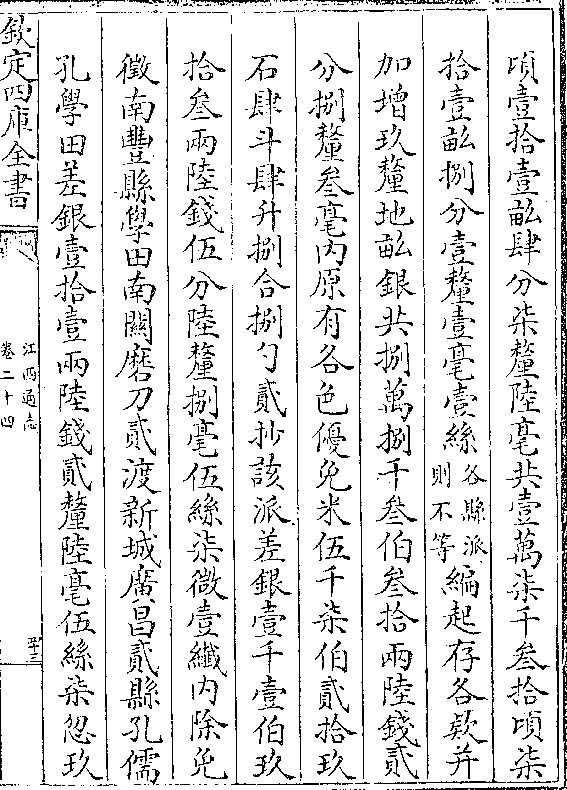 頃壹拾壹畝肆分柒釐陸毫共壹萬柒千叁拾頃柒
拾壹畝捌分壹釐壹毫壹絲各縣派則不等編起存各欵并
加增玖釐地畝銀共捌萬捌千叁伯叁拾兩陸錢貳
分捌釐叁毫内原有各色優免米伍千柒伯貳拾玖
石肆斗肆升捌合捌勺貳抄該派差銀壹千壹伯玖
拾叁兩陸錢伍分陸釐捌毫伍絲柒微壹纖内除免
徵南豐縣學田南關磨刀貳渡新城廣昌貳縣孔儒
孔學田差銀壹拾壹兩陸錢貳釐陸毫伍絲柒忽玖
欽定四庫全書
江西通志
卷二十四
五十三